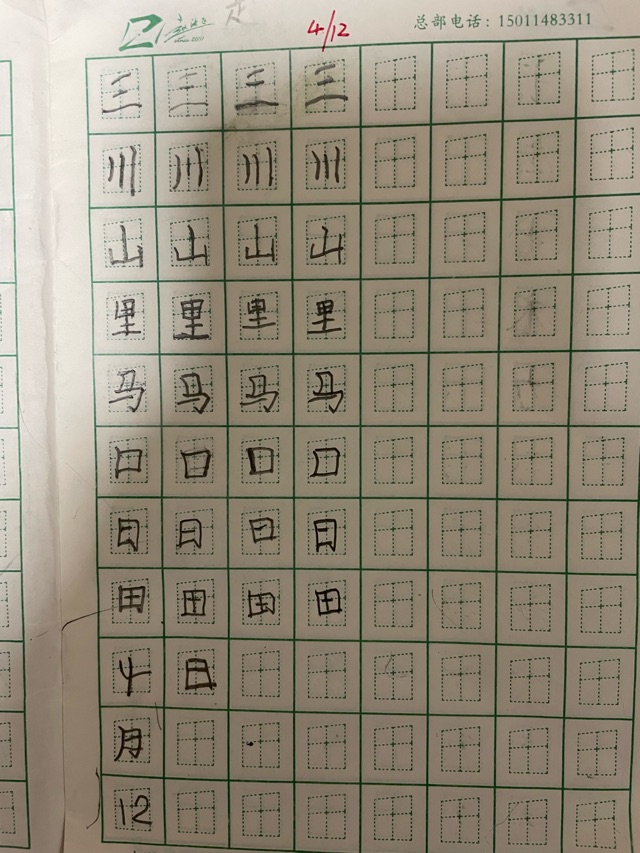 4/12
总部电话：15011483311
三 三 三 三
川 川 川 川
山 山 山 山
里 里 里 里
马 马 马 马
口 口 口 口
日 日 日 日
田 田 田 田
日
月
12